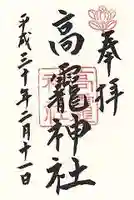 奉拝
高龗神社
平成三十年二月十一日